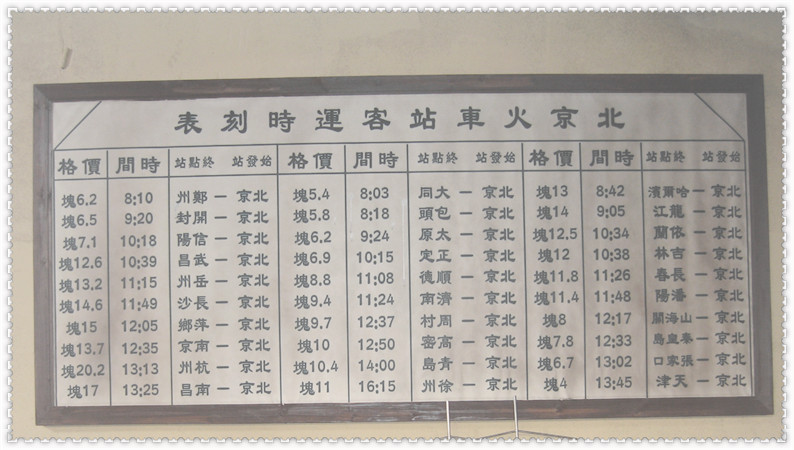 北京火車站客運時刻表
始發站 終點站 時間 價格 始發站 終點站 時間 價格 始發站 終點站 時間 價格
北京一哈爾濱 8:42 13塊 北京一大同 8:03 5.4塊 北京一鄭州 8:10 6.2塊
北京一龍江 9:05 14塊 北京一包頭 8:18 5.8塊 北京一開封 9:20 6.5塊
北京一依蘭 10:34 12.5塊 北京一太原 9:24 6.2塊 北京一信陽 10:18 7.1塊
北京一吉林 10:38 12塊 北京一正定 10:15 6.9塊 北京一武昌 10:39 12.6塊
北京一長春 11:26 11.8塊 北京一順德 11:08 8.8塊 北京一岳州 11:15 13.2塊
北京一潘陽 11:48 11.4塊 北京一濟南 11:24 9.4塊 北京一長沙 11:49 14.6塊
北京一山海關 12:17 8塊 北京一周村 12:37 9.7塊 北京一萍鄉 12:05 15塊
北京一秦皇島 12:33 7.8塊 北京一高密 12:50 10塊 北京一南京 12:35 13.7塊
北京一張家口 13:02 6.7塊 北京一青島 14:00 10.4塊 北京一杭州 13:13 20.2塊
北京一天津 13:45 4塊 北京一徐州 16:15 11塊 北京一南昌 13:25 17塊